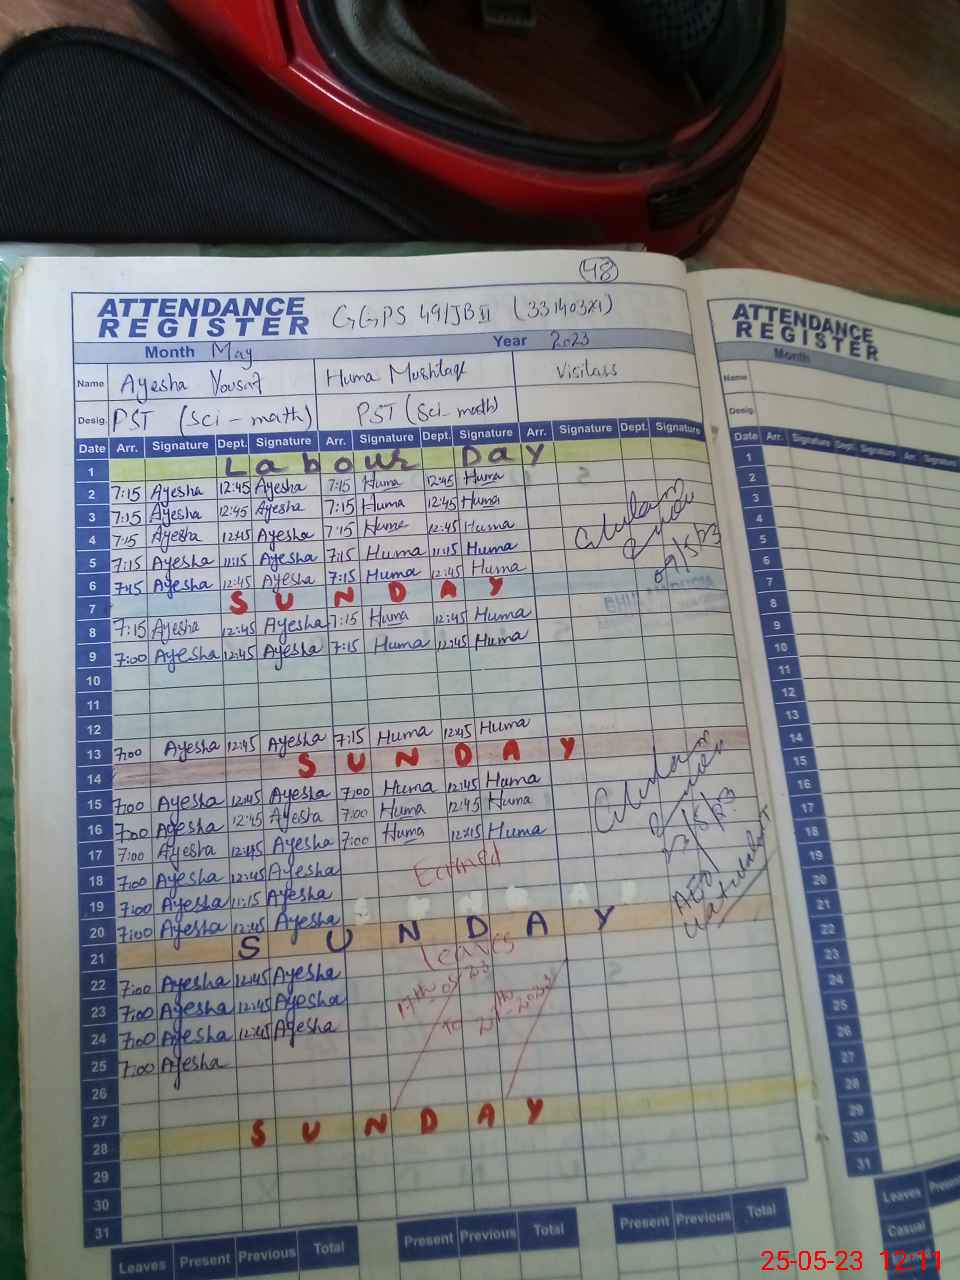 48
ATTENDANCE REGISTER GGPS 491JB II (33140321)
Month May Year 2023
Name Ayesha Yousaf Huma Mushtaq Visitors
Desig. PST (Sci-math) PST (Sci-math)
Date Arr. Signature Dept. Signature Arr. Signature Dept. Signature Arr. Signature Dept. Signature
1 Labour Day
2 7:15 Ayesha 12:45 Ayesha 7:15 Huma 12:45 Huma
3 7:15 Ayesha 12:45 Ayesha 7:15 Huma 12:45 Huma
4 7:15 Ayesha 12:45 Ayesha 7:15 Huma 12:45 Huma
5 7:15 Ayesha 11:15 Ayesha 7:15 Huma 11:15 Huma
6 7:15 Ayesha 12:45 Ayesha 7:15 Huma 12:45 Huma
7 SUNDAY
8 7:15 Ayesha 12:45 Ayesha 7:15 Huma 12:45 Huma
9 7:00 Ayesha 12:45 Ayesha 7:15 Huma 12:45 Huma
10
11
12
13 7:00 Ayesha 12:45 Ayesha 7:15 Huma 12:45 Huma
14 SUNDAY
15 7:00 Ayesha 12:45 Ayesha 7:00 Huma 12:45 Huma
16 7:00 Ayesha 12:45 Ayesha 7:00 Huma 12:45 Huma
17 7:00 Ayesha 12:45 Ayesha 7:00 Huma 12:45 Huma
18 7:00 Ayesha 12:45 Ayesha Earned
19 7:00 Ayesha 11:15 Ayesha
20 7:00 Ayesha 12:45 Ayesha
21 SUNDAY
Leaves
22 7:00 Ayesha 12:45 Ayesha
23 7:00 Ayesha 12:45 Ayesha
24 7:00 Ayesha 12:45 Ayesha
25 7:00 Ayesha
26
27
28 SUNDAY
29
30
31
Leaves Present Previous Total Present Previous Total Present Previous Total
09/5/23
AEO
ATTENDANCE REGISTER
Month
Name
Desig.
Date Arr. Signature Dept. Signature Arr. Signature
1
2
3
4
5
6
7
8
9
10
11
12
13
14
15
16
17
18
19
20
21
22
23
24
25
26
27
28
29
30
31
Leaves Present
Casual
25-05-23 12:11